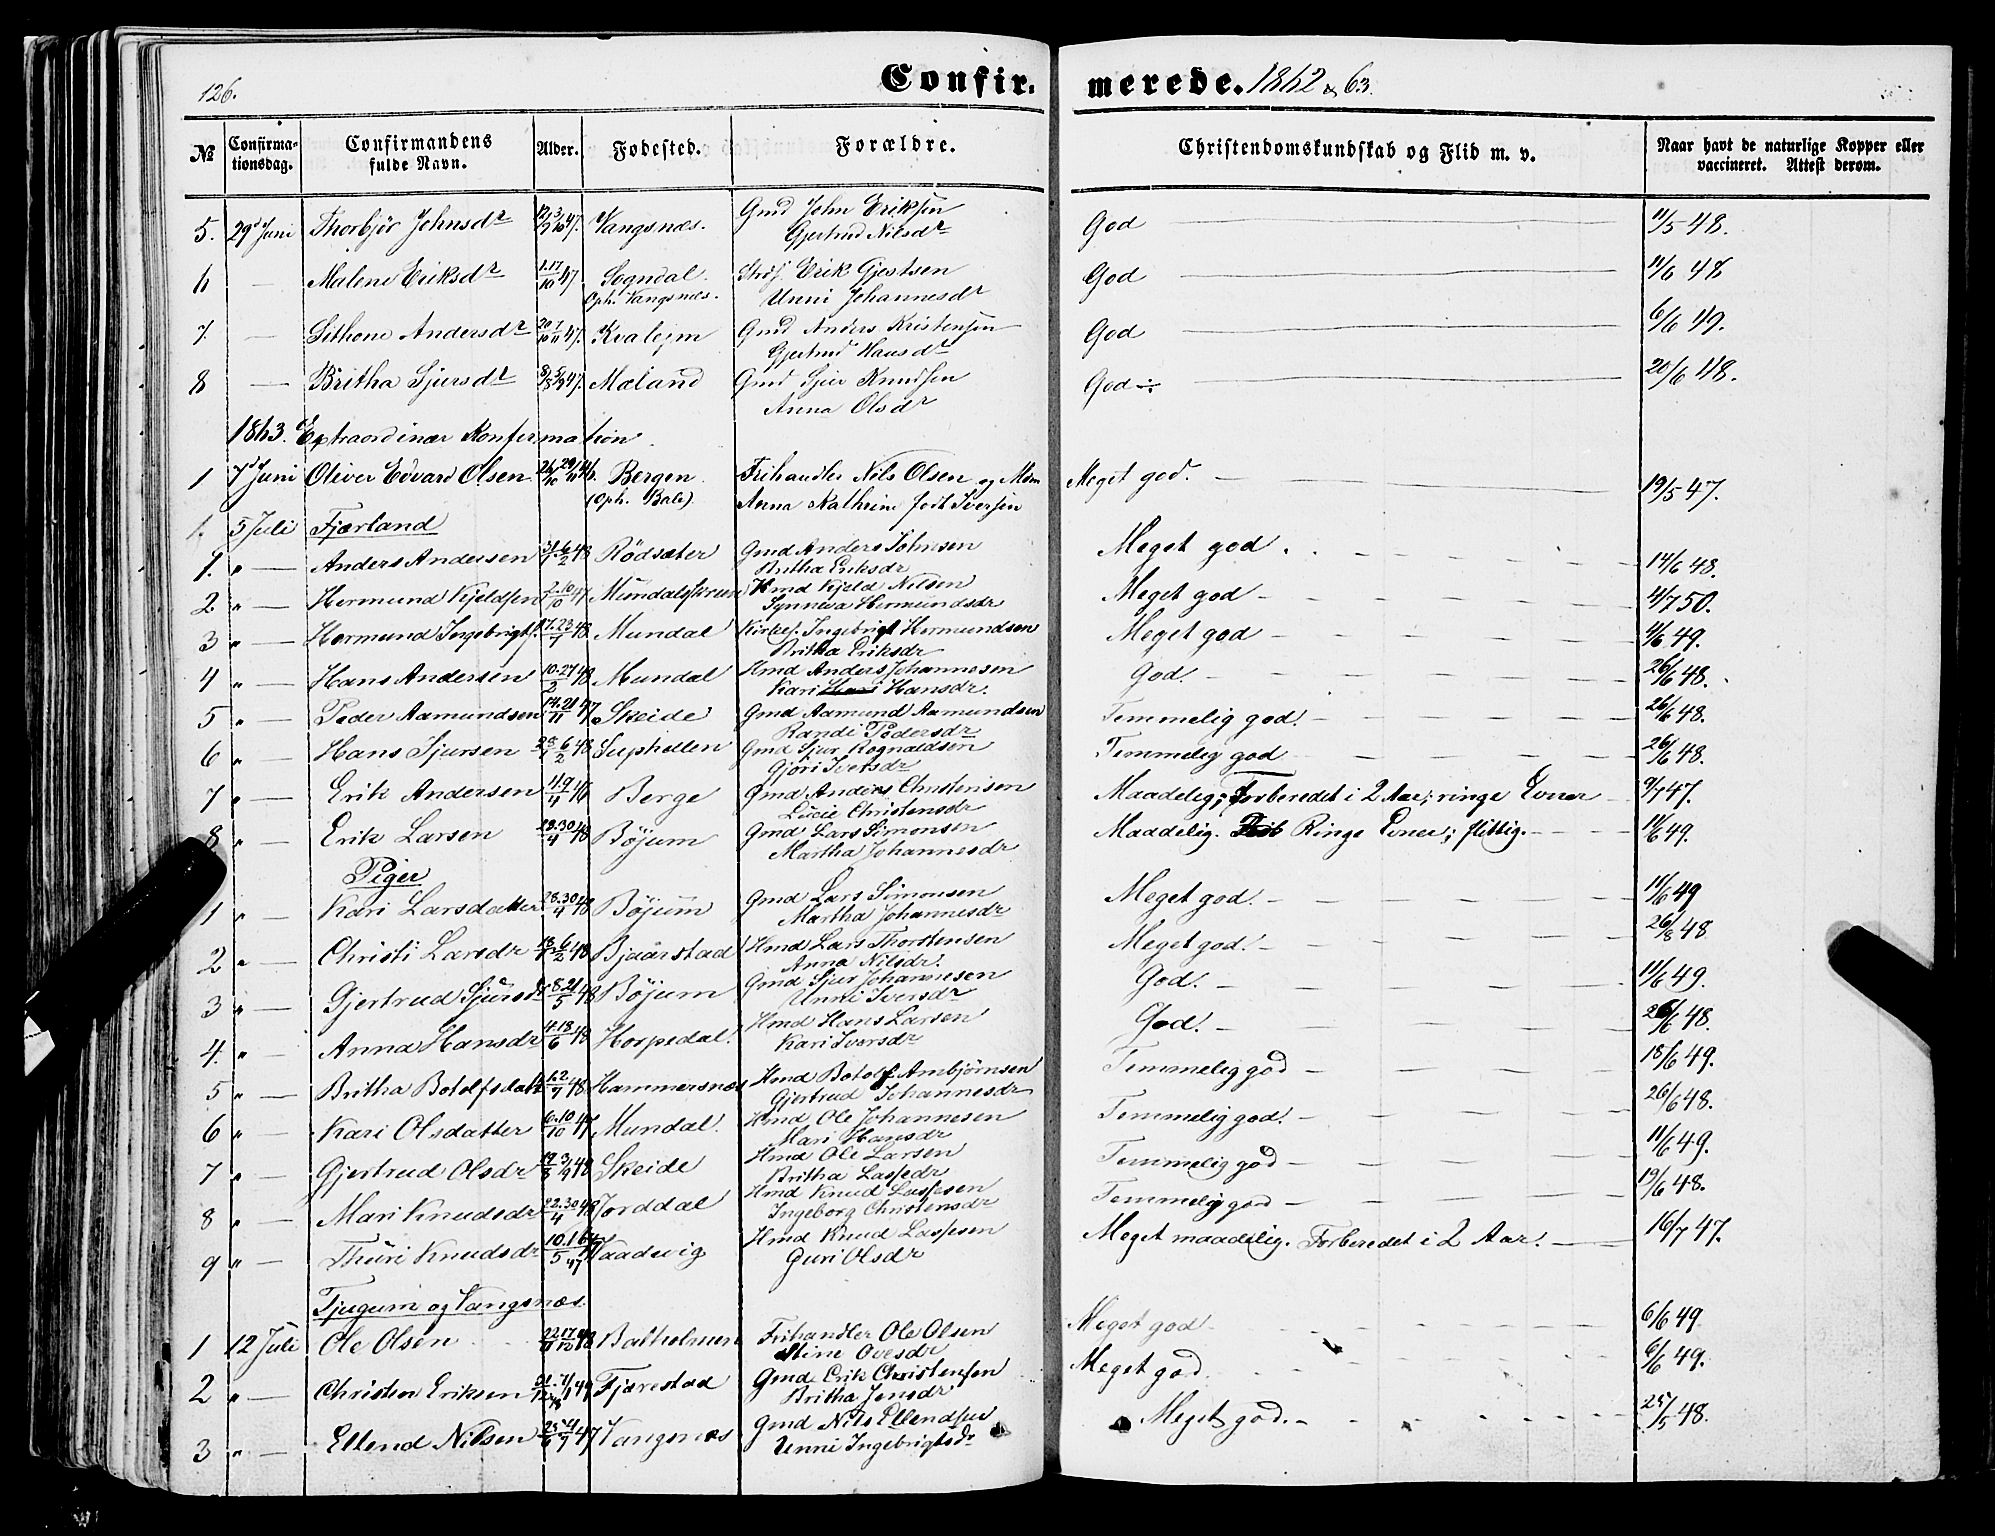 126.
Confir- merede. 1862 & 63.
№ Confirma-tionsdag. Confirmandens fulde Navn. Alder. Fødested. Forældre. Christendomskundskab og Flid m. v. Naar havt de naturlige Kopper eller vaccineret. Attest derom.
5. 29d Juni Thorbjør Johnsdr 47. Vangsnæs. Gmd John Eriksen God 11/5 48.
Gjertrud Nilsdr
6 — Malene Eriksdr 1.17/10 47 Sogndal Erik Gjestsen God 11/6 48
Oph. Vangsnæs. Unni Johannesdr
7. — Sithone Andersdr 47. Kvalejm Gmd Anders Kristensen God 6/6 49.
Gjertrud Hansdr
8 — Britha Sjursdr 47. Mæland Gmd Sjur Knudsen God ÷ 20/6 48.
Anna Olsdr
1863. Extraordinær Konfirmation.
1 7d Juni Oliver Edvard Olsen 46. Bergen Frihandler Nils Olsen og Meget god. 19/5 47.
(Oph. Bale) Anna Kathrine født Iversen
1. 5 Juli Fjærland
1. " — Anders Andersen 31/1 6/2 48 Rödsæter Gmd Anders Johnsen Meget god. 14/6 48.
Britha Eriksdr
2 " — Hermund Kjeldsen 2.10/10 47 Mundalsøren Hmd Kjeld Nilsen Meget god 4/7 50.
Synneva Hermundsdr
3 " — Hermund Ingebrigts. 17.23/7 48 Mundal Kirkes. Ingebrigt Hermundsen Meget god 4/6 49.
Britha Eriksdr
4 " — Hans Andersen 10.27/2 48 Mundal Hmd Anders Johannesen God. 26/6 48.
Kari Hansdr.
5 " — Peder Aamundsen 14.21/11 47 Skeide Gmd Aamund Aamundsen Temmelig god. 26/6 48.
Randi Pedersdr
6 " — Hans Sjursen 6/2 48 Suphellen Gmd Sjur Rognaldsen Temmelig god 26/6 48.
Gjöri Iversdr
7 " — Erik Andersen 4.9/4 46 Berge Gmd Anders Christensen Maadelig; Forberedet i 2 Aar; ringe Evner 9/7 47.
Lucie Christensdr
8 " — Erik Larsen 28.30/4 48 Böjum Gmd Lars Simonsen Maadelig. Ringe Evner; flittig. 11/6 49.
Martha Johannesdr
Piger
1 " — Kari Larsdatter 28.30/4 48 Böjum Gmd Lars Simonsen Meget god. 11/6 49
Martha Johannesdr
2 " — Christi Larsdr 6/2 48 Bjaarstad Hmd Lars Thorstensen Meget god. 26/8 48
Anna Nilsdr.
3 " — Gjertrud Sjursdr 8.21/5 48 Böjum Gmd Sjur Johannesen God. 11/6 49.
Unni Iversdr
4. " — Anna Hansdr 4.18/6 48 Horpedal. Hmd Hans Larsen God. 26/6 48.
Kari Iversdr
5 " — Britha Botolfsdatr 48 Hammersnæs Hmd Botolf Ambjörnsen Temmelig god 18/6 49.
Gjertrud Johannesdr
6 " — Kari Olsdatter 6.10/10 47 Mundal. Hmd Ole Johannesen Temmelig god. 26/6 48.
Mari Hansdr
7 " — Gjertrud Olsdr 19/8 3/9 48 Skeide Hmd Ole Larsen Temmelig god 11/6 49.
Britha Lassedr
8 " — Mari Knudsdr 22.30/4 48 Jorddal Hmd Knud Lassesen Temmelig god 19/6 48.
Ingeborg Christensdr
9 " — Thuri Knudsdr 10.16/5 47 Vaadevig Hmd Knud Lassesen Meget maadelig. Forberedet i 2 Aar. 16/7 47.
Guri Olsdr
Tjugum og Vangsnæs.
1 12 Juli Ole Olsen 48 Balholmen Frihandler Ole Olsen Meget god 6/6 49
Stine Ovesdr
2 " — Christen Eriksen Fjærestad Gmd Erik Christensen Meget god. 6/6 49.
Britha Jensdr
3 " — Ellend Nilsen 47 Vangsnæs Gmd Nils Ellendsen Meget god. 25/5 48.
Unni Ingebrigtsdr